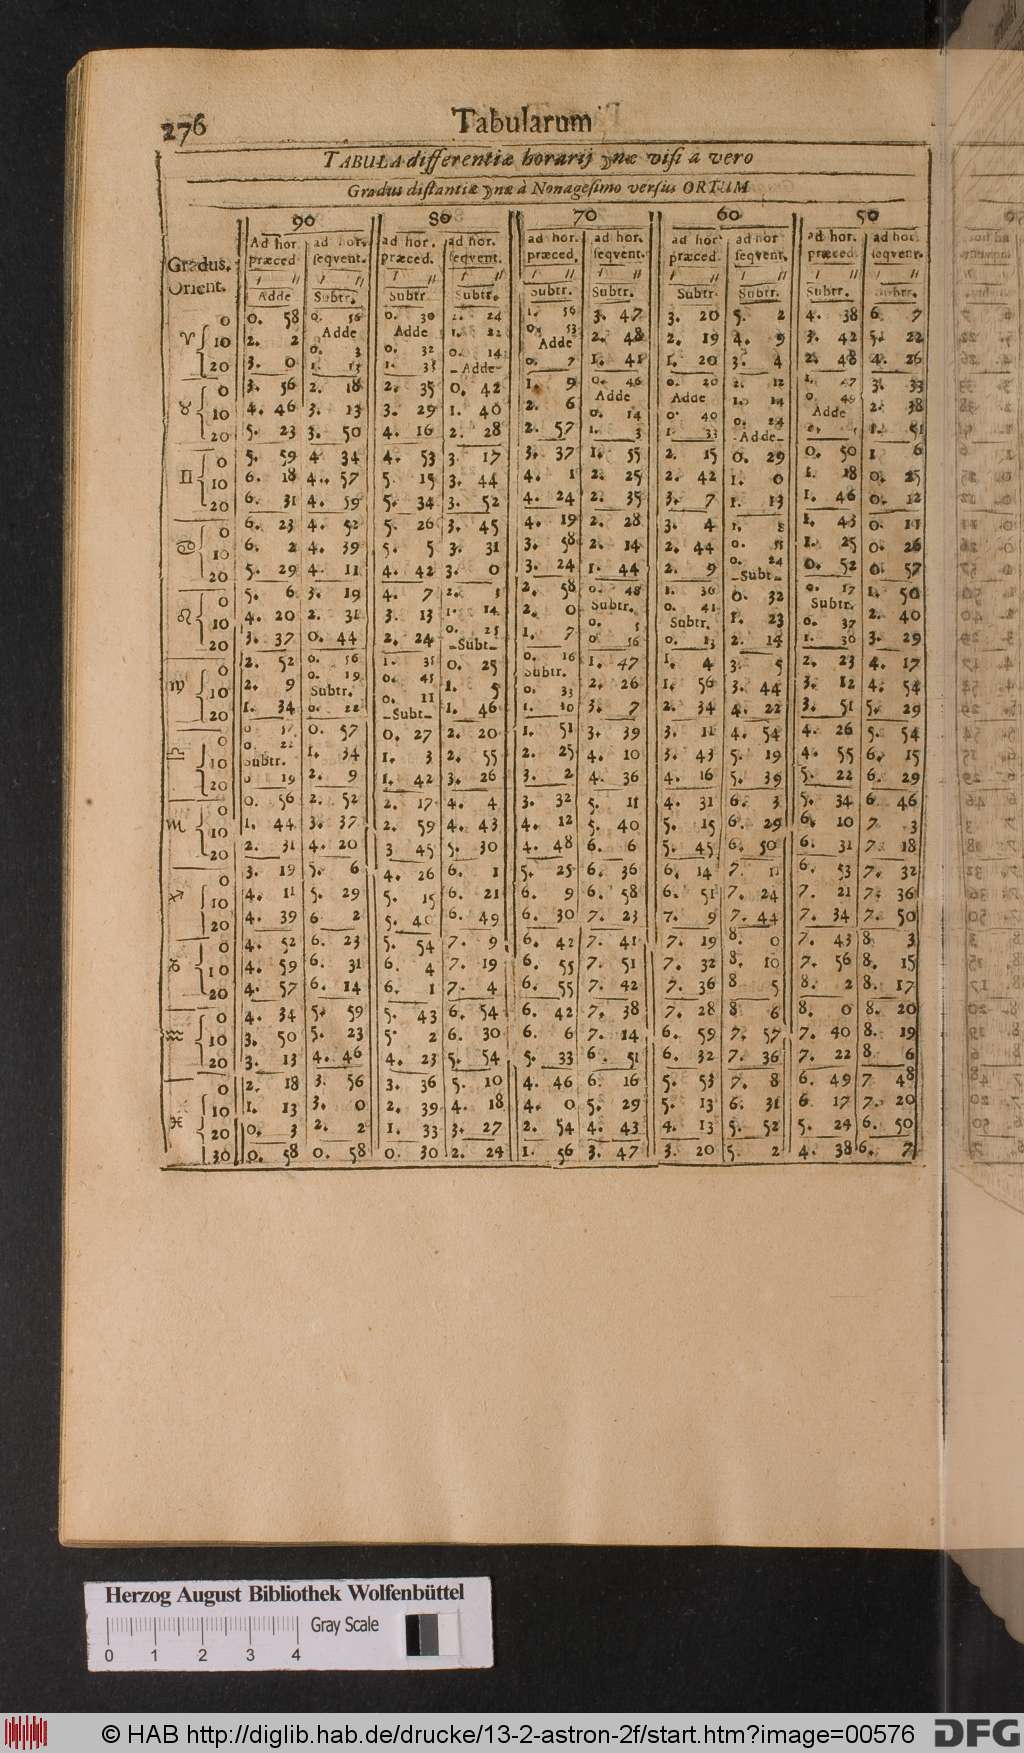 276 Tabularum
TABULA differentiæ horarij ☽næ visi a vero
Gradus distantiæ ☽næ à Nonagesimo versus ORTUM
90 80 70 60 50
Ad hor. ad hor. ad hor. ad hor. ad hor. ad hor. ad hor ad hor ad hor. ad hor.
Gradus. præced seqvent. præced. seqvent. præced, seqvent. præced. seqvent. præced. seqvent.
Orient. ′ ″ ′ ″ ′ ″ ′ ″ ′ ″ ′ ″ ′ ″ ′ ″ ′ ″ ′ ″
Adde Subtr. Subtr Subtr. Subtr. Subtr. Subtr. Subtr. Subtr. Subtr.
♈ 0 0. 58 0. 58 0. 30 2. 24 1. 56 3. 47 3. 20 5. 2 4. 38 6. 7
10 2. 2 Adde 0. 3 Adde 0. 32 1. 22 0. 53 Adde 2. 48 2. 19 4. 9 3. 42 5. 22
20 3. 0 1. 13 1. 33 0. 14 Adde 0. 7 1. 41 1. 20 3. 4 2. 48 4. 26
♉ 0 3. 56 2. 18 2. 35 0. 42 1. 9 0. 46 Adde 0. 20 Adde 2. 12 1. 47 3. 33
10 4. 46 3. 13 3. 29 1. 40 2. 6 0. 14 0. 40 1. 14 0. 49 Adde 2. 38
20 5. 23 3. 50 4. 16 2. 28 2. 57 1. 3 1. 33 0. 24 Adde 1. 51
♊ 0 5. 59 4 34 4. 53 3. 17 3. 37 1. 55 2. 15 0. 29 0. 50 1 6
10 6. 18 4. 57 5. 15 3. 44 4. 1 2. 25 2. 42 1. 0 1. 18 0. 25
20 6. 31 4. 59 5. 34 3. 52 4. 24 2. 35 3. 7 1. 13 1. 46 0. 12
♋ 0 6. 23 4. 52 5. 26 3. 45 4. 19 2. 28 3. 4 1. 8 1. 43 0. 11
10 6. 2 4. 39 5. 5 3. 31 3. 58 2. 14 2. 44 0. 55 1. 25 0. 26
20 5. 29 4. 11 4. 42 3. 0 3. 24 1. 44 2. 9 0. 24 Subt 0. 52 0. 57
♌ 0 5. 6 3. 19 4. 7 2. 3 2. 58 0. 48 Subtr. 1. 36 0. 32 0. 17 Subtr. 1. 50
10 4. 20 2. 31 3. 13 1. 14 2. 0 0. 5 0. 41 Subtr. 1. 23 0. 37 2. 40
20 3. 37 0. 44 2. 24 0. 25 Subt 1. 7 0 56 0. 13 2. 14 1. 30 3. 29
♍ 0 2. 52 0. 56 1. 35 0. 25 0. 16 Subtr. 1. 47 1. 4 3. 5 2. 23 4. 17
10 2. 9 0. 19 Subtr. 0. 45 1. 5 0. 33 2. 26 1. 56 3. 44 3. 12 4. 54
20 1. 34 0. 22 0. 11 Subt 1. 46 1. 20 3. 7 2. 34 4. 22 3. 51 5. 29
♎ 0 0 57 0. 57 0. 27 2. 20 1. 51 3. 39 3. 11 4. 54 4. 26 5. 54
10 0. 22 Subtr. 1. 34 1. 3 2. 55 2. 25 4. 10 3. 43 5. 19 4. 55 6. 15
20 0 19 2. 9 1. 42 3. 26 3. 2 4. 36 4. 16 5. 39 5. 22 6. 29
♏ 0 0. 56 2. 52 2. 17 4. 4 3. 32 5. 11 4. 31 6. 3 5. 34 6 46
10 1. 44 3. 37 2. 59 4. 43 4. 12 5. 40 5. 15 6. 29 6. 10 7 3
20 2. 31 4. 20 3 45 5. 30 4. 48 6. 6 5. 45 6. 50 6. 31 7. 18
♐ 0 3. 19 5. 6 4. 26 6. 1 5. 25 6. 36 6. 14 7. 11 6. 53 7. 32
10 4. 11 5. 29 5. 15 6. 21 6. 9 6. 58 6. 51 7. 24 7. 21 7. 36
20 4. 39 6 2 5. 40 6. 49 6. 30 7. 23 7. 9 7. 44 7. 34 7. 50
♑ 0 4. 52 6. 23 5. 54 7. 9 6. 42 7. 41 7. 19 8. 0 7. 43 8. 3
10 4. 59 6. 31 6. 4 7. 19 6. 55 7. 51 7. 32 8. 10 7. 56 8. 15
20 4. 57 6. 14 6. 1 7. 4 6. 55 7. 42 7. 36 8 5 8. 2 8. 17
♒ 0 4. 34 5. 59 5. 43 6. 54 6. 42 7. 38 7. 28 8 6 8. 0 8. 20
10 3. 50 5. 23 5. 2 6. 30 6. 6 7. 14 6. 59 7. 57 7. 40 8. 19
20 3. 13 4. 46 4. 23 5. 54 5. 33 6. 51 6. 32 7. 36 7. 22 8. 6
♓ 0 2. 18 3. 56 3. 36 5. 10 4. 46 6. 16 5. 53 7. 8 6. 49 7 48
10 1. 13 3. 0 2. 39 4. 18 4. 0 5. 29 5. 13 6. 31 6 17 7. 20
20 0. 3 2. 2 1. 33 3. 27 2. 54 4. 43 4. 13 5. 52 5. 24 6. 50
30 0. 58 0. 58 0. 30 2. 24 1. 56 3. 47 3. 20 5. 2 4. 38 6. 7
Herzog August Bibliothek Wolfenbüttel
Gray Scale
0 1 2 3 4
© HAB http://diglib.hab.de/drucke/13-2-astron-2f/start.htm?image=00576 DFG